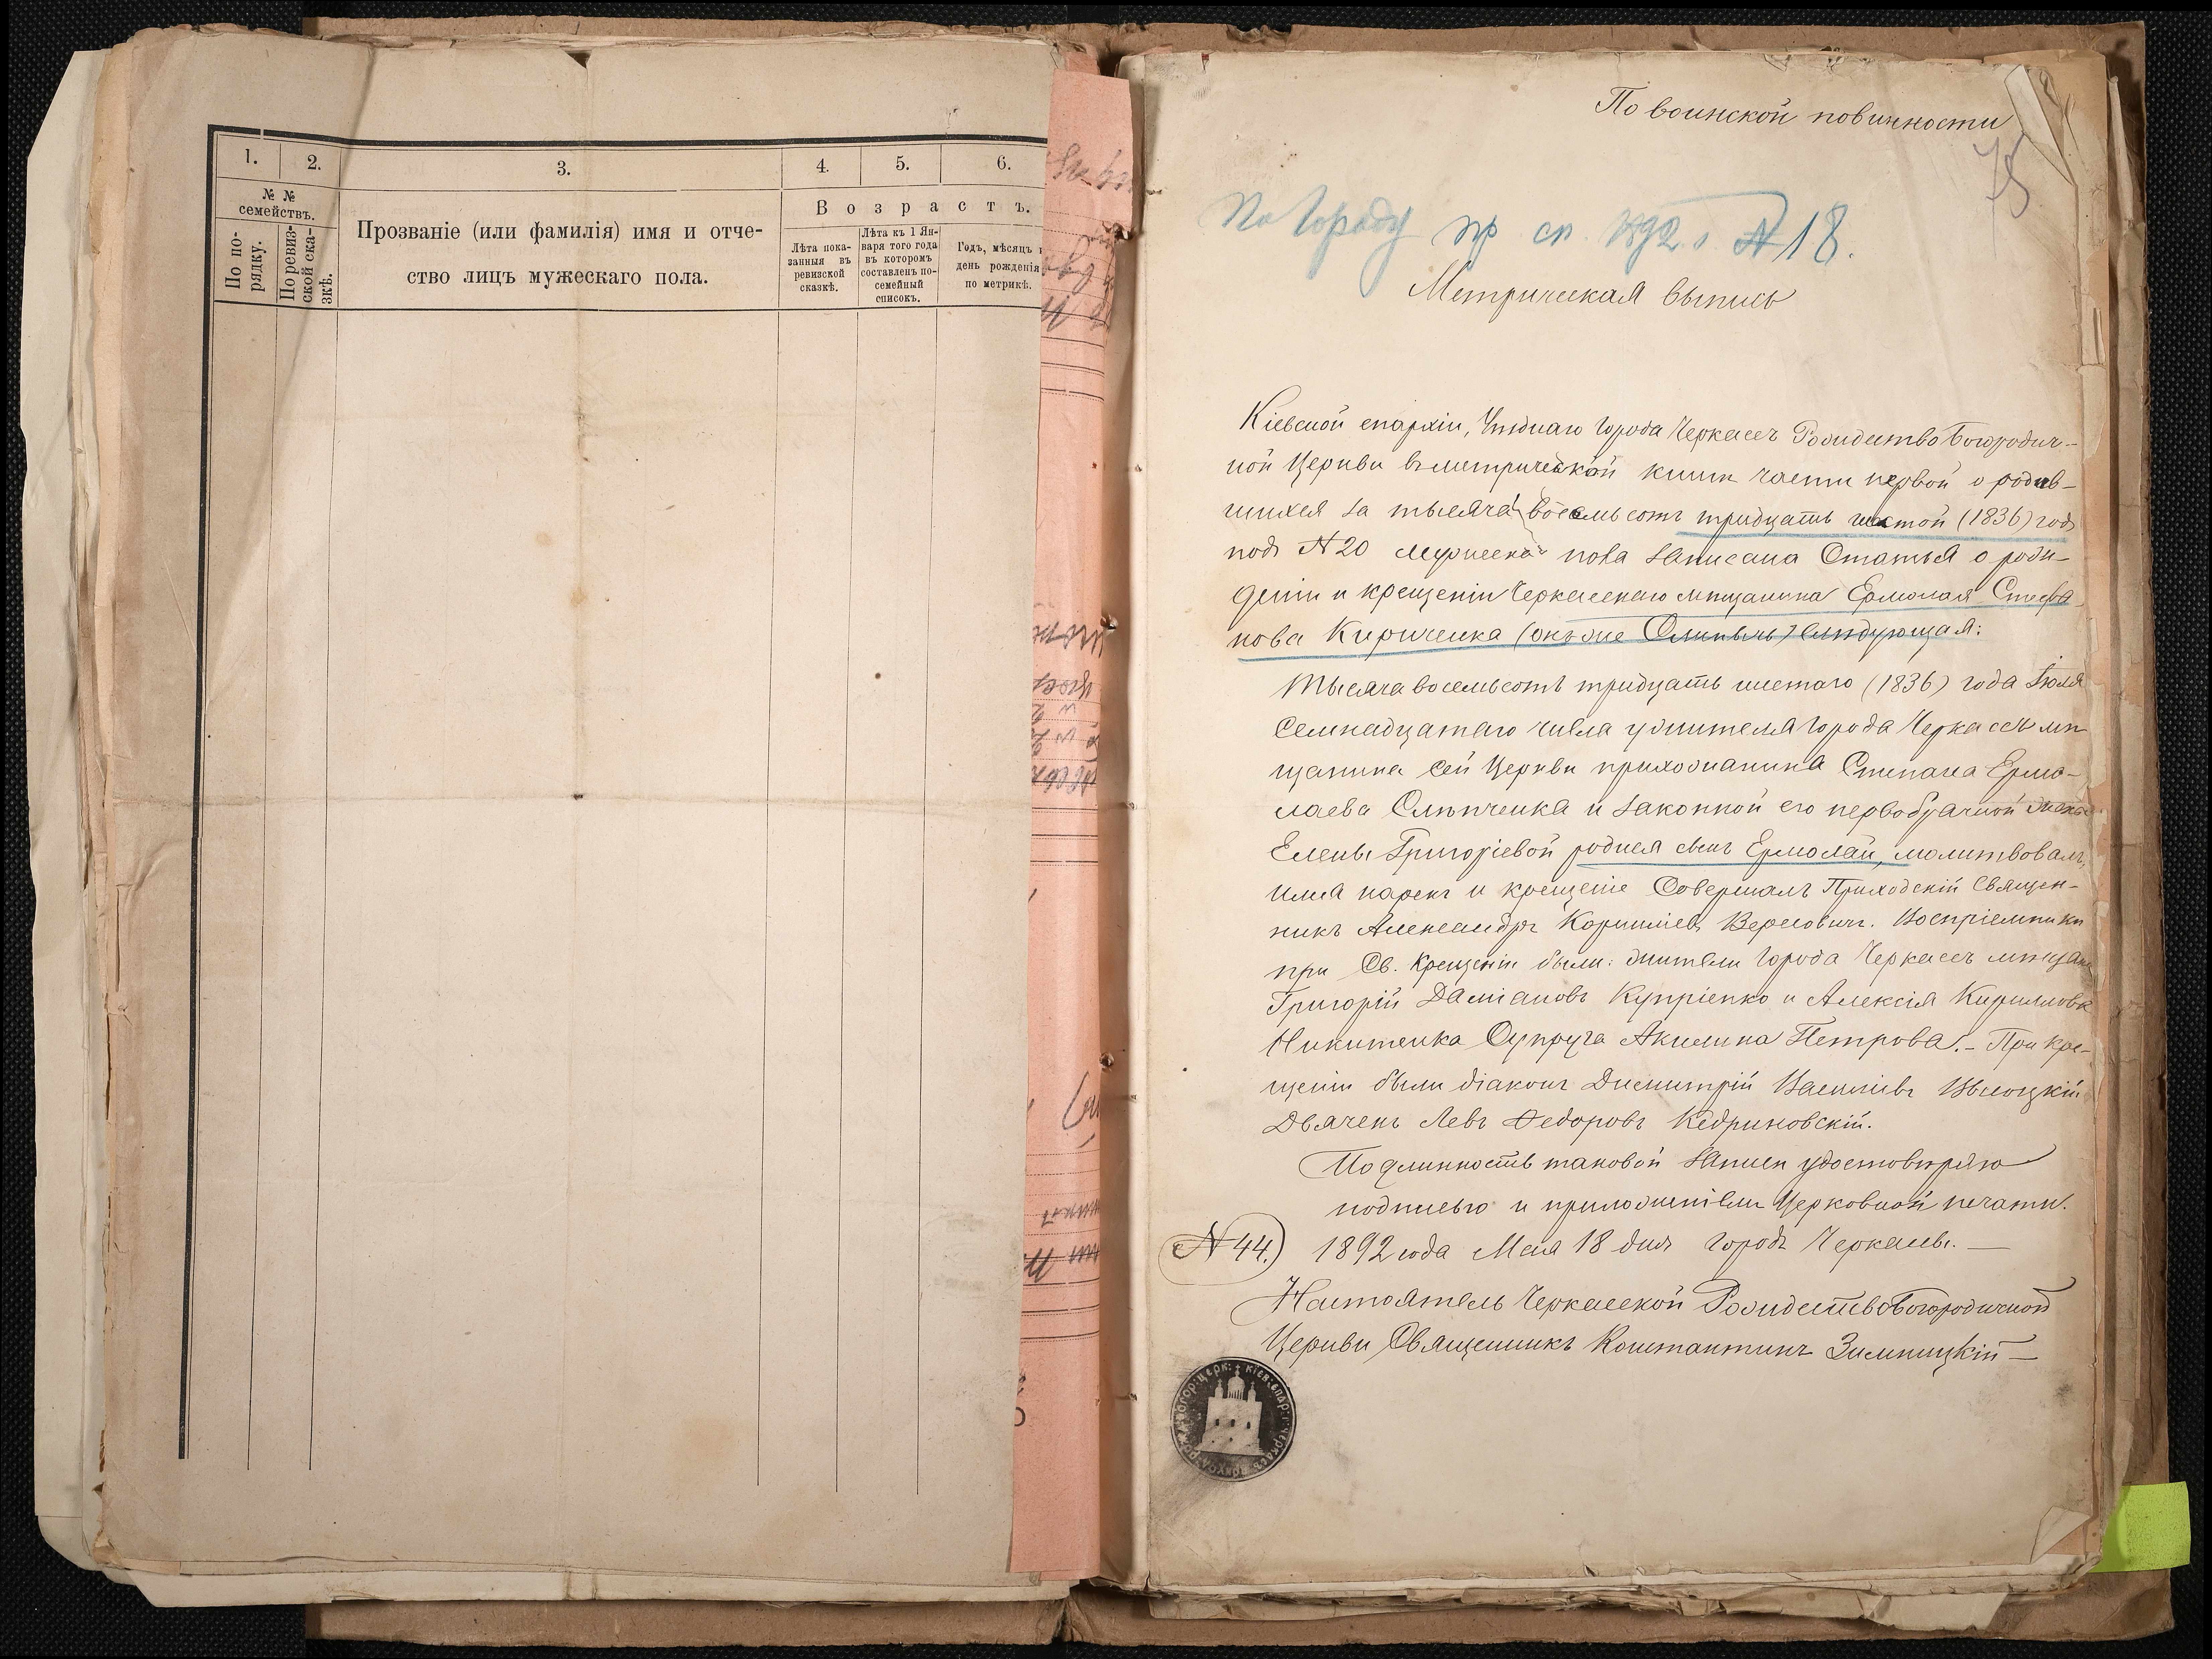 1.
2.
3.
4.
5.
6.
№ №
семействъ.
По по-
рядку.
По ревиз-
ской ска-
зкѣ.
Прозваніе (или фамилія) имя и отче-
ство лицъ мужескаго пола.
Возрастъ.
Лѣта пока-
занныя въ
ревизской
сказкѣ.
Лѣта къ 1 Ян-
варя того года
въ которомъ
составленъ по-
семейный
списокъ.
Годъ, мѣсяцъ и
день рожденія
по метрикѣ.
По воинской повинности
75
По городу пр сп. 1892 г №18.
Метрическая выпись
Кіевской епархіи, Уѣзднаго города Черкассъ Рождество Богородич-
ной Церкви въ метрической книгѣ части первой о родив-
шихся за тысяча восемьсотъ тридцать шестой (1836) годъ
подъ №20 мужеска пола записана Статья о рож-
деніи и крещеніи Черкасскаго мѣщанина Ермолая Стефа-
нова Кириченка (онъ же Слипычъ) слѣдующая:
Тысяча восемьсотъ тридцать шестаго (1836) года Іюля
Семнадцатаго числа у жителя города Черкассъ мѣ-
щанина сей Церкви прихожанина Стефана Ермо-
лаева Слѣпченка и законной его первобрачной жены
Елены Григоріевой родился сынъ Ермолай, молитвовалъ,
имя нарекъ и крещеніе Совершалъ Приходскій Священ-
никъ Александръ Корниліевъ Вересовичъ. Воспріемники
при Св. крещеніи были: жители города Черкассъ мѣщане
Григорій Даміановъ Купріенко и Алексія Кириллова
Никитенка Супруга Акилина Петрова. – При кре-
щеніи были діаконъ Димитрій Васильевъ Высоцкій
Дьячекъ Левъ Федоровъ Кедриновскій.
Подлинность таковой записи удостовѣряю
подписью и приложеніемъ Церковной печати.
№ 44.) 1892 года Мая 18 дня городъ Черкассы. —
Настоятель Черкасской Рождество Богородичной
Церкви Священникъ Константинъ Зимницкій —